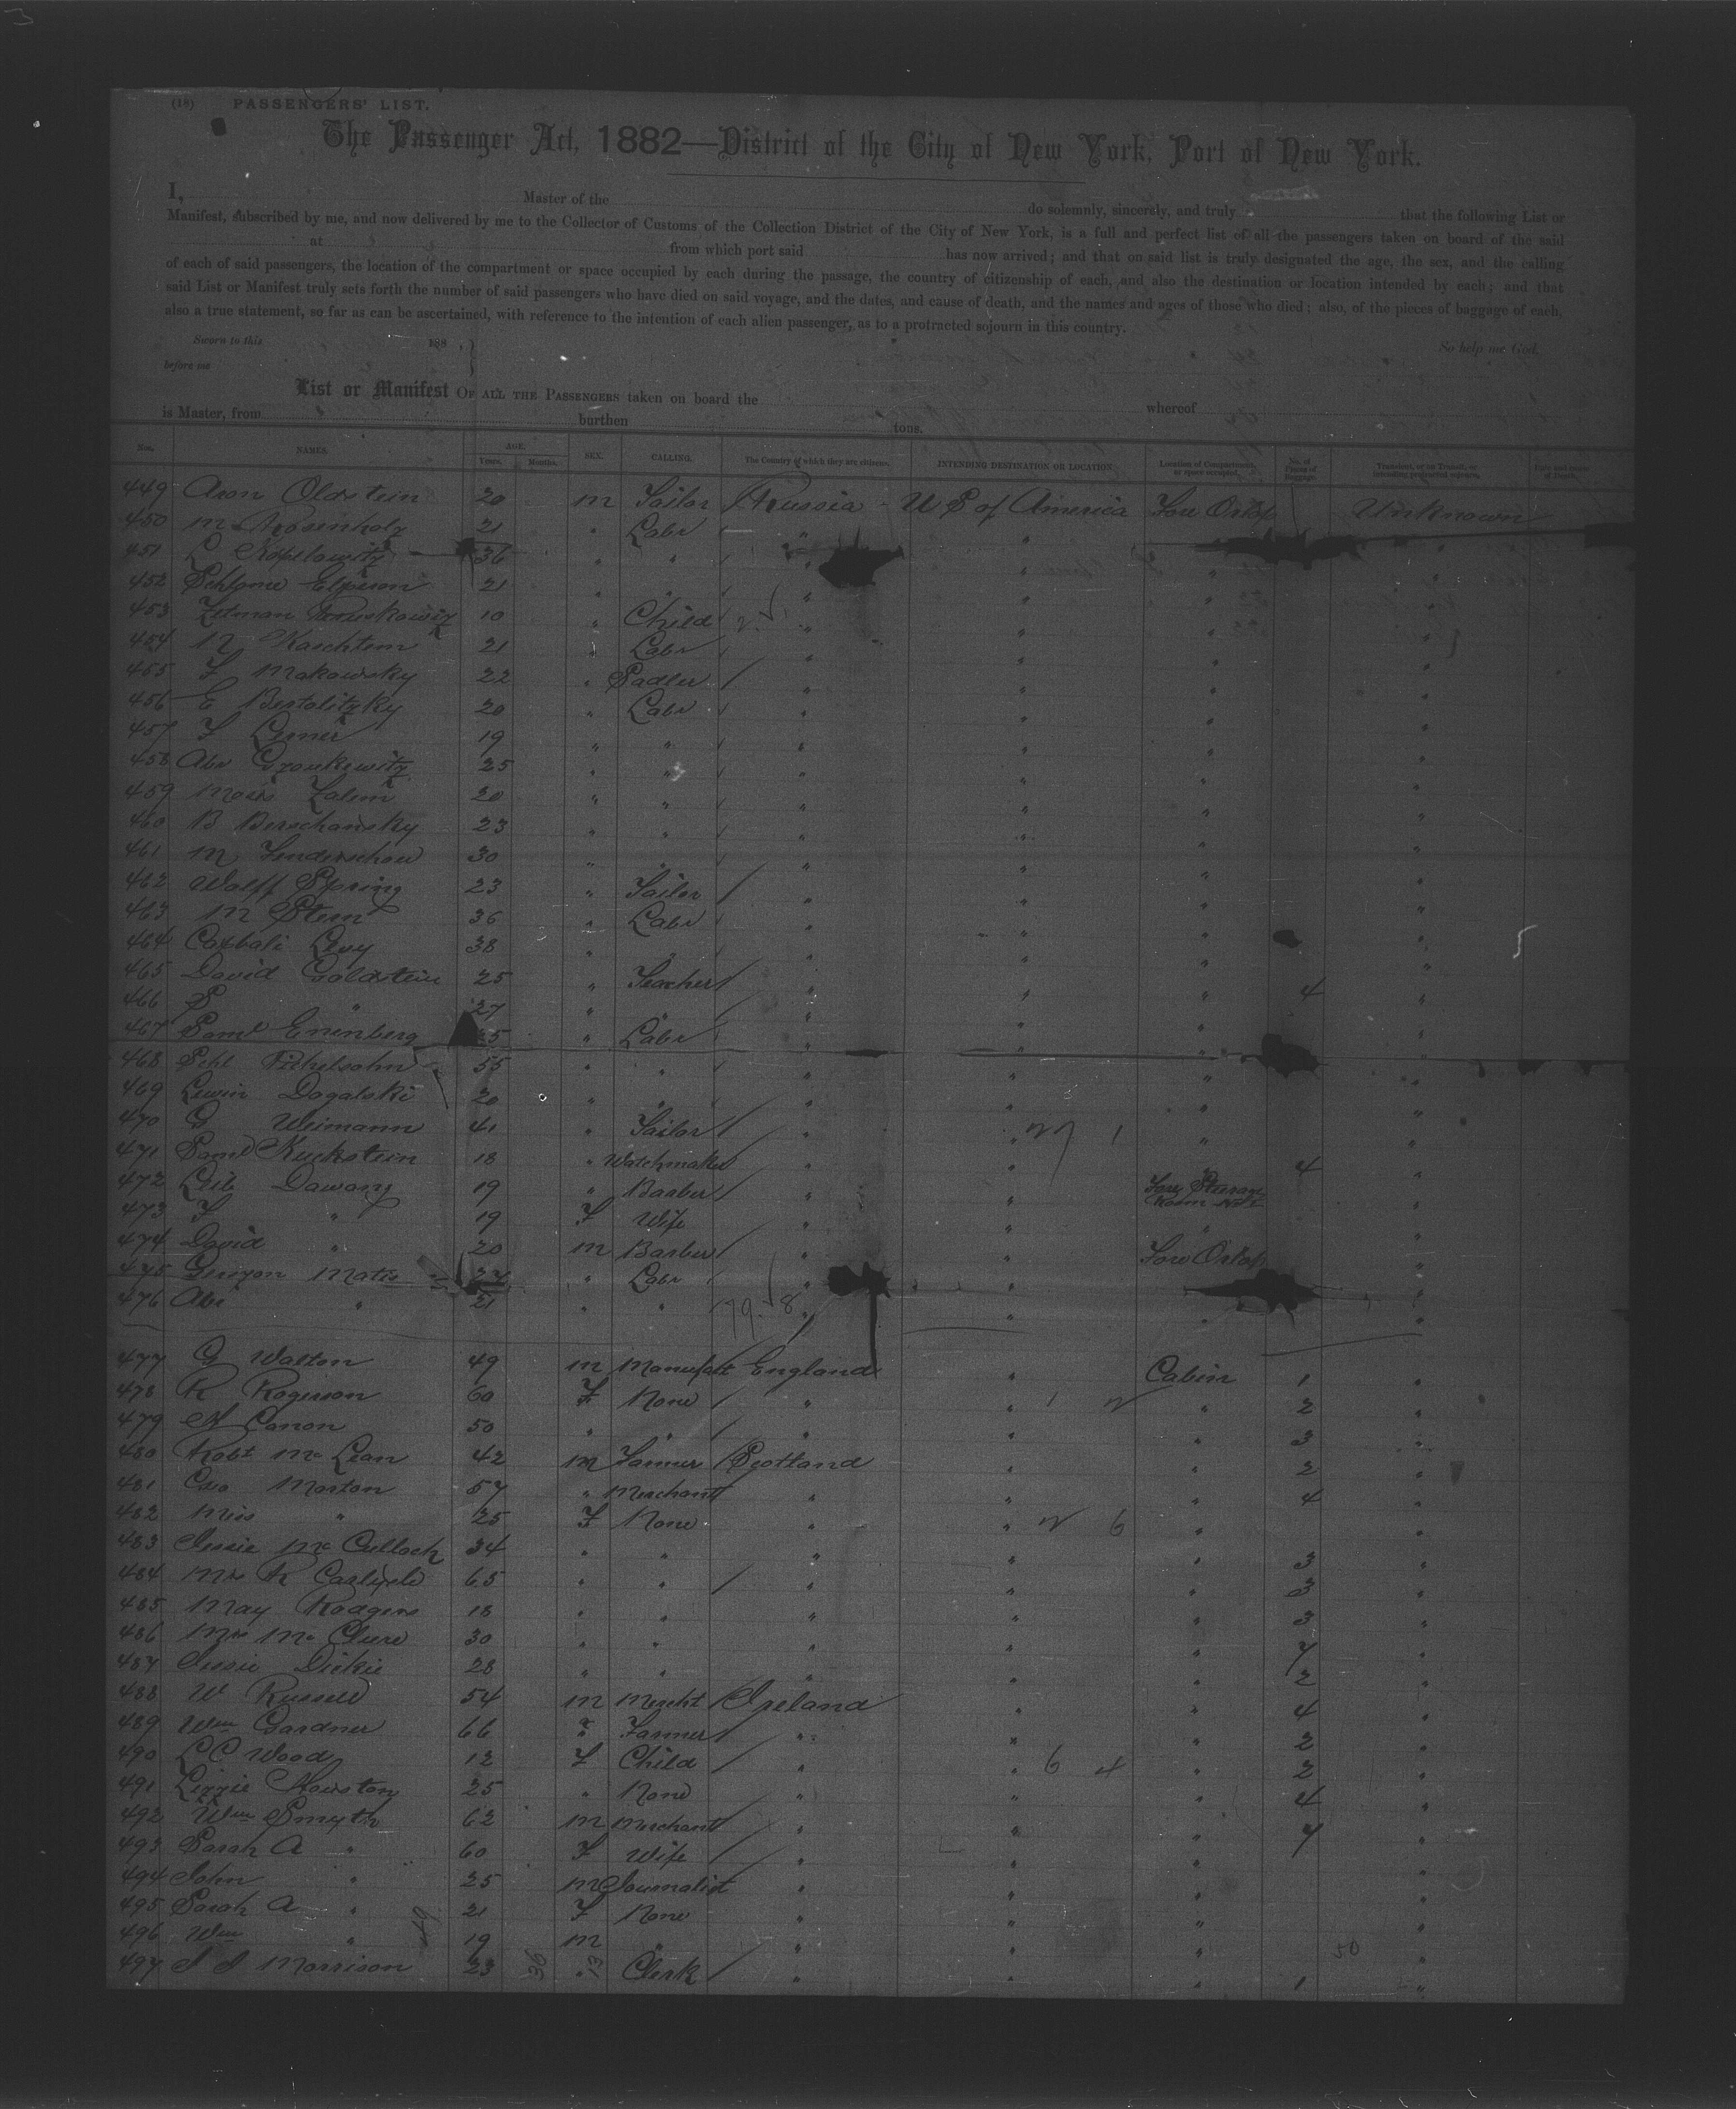 (18) PASSENGERS' LIST.
The Passenger Act, 1882—District of the City of New York, Port of New York.
I, Master of the do solemnly, sincerely, and truly that the following List or
Manifest, subscribed by me, and now delivered by me to the Collector of Customs of the Collection District of the City of New York, is a full and perfect list of all the passengers taken on board of the said
at from which port said has now arrived; and that on said list is truly designated the age, the sex, and the calling
of each of said passengers, the location of the compartment or space occupied by each during the passage, the country of citizenship of each, and also the destination or location intended by each; and that
said List or Manifest truly sets forth the number of said passengers who have died on said voyage, and the dates, and cause of death, and the names and ages of those who died; also, of the pieces of baggage of each,
also a true statement, so far as can be ascertained, with reference to the intention of each alien passenger, as to a protracted sojourn in this country.
Sworn to this 188 . } So help me God.
before me
List or Manifest OF ALL THE PASSENGERS taken on board the whereof
is Master, from burthen tons.
Nos. NAMES. AGE. Years. Months. SEX. CALLING. The Country of which they are citizens. INTENDING DESTINATION OR LOCATION Location of Compartment, or space occupied. No. of Pieces of Baggage. Transient, or in Transit, or intending protracted sojourn. Date and cause of Death.
449 Aron Oldstein 20 m Tailor Russia - U S of America Fore Orlop Unknown
450 M 21 " Labr " " "
451 L Kopelowitz 36 " " " " " "
452 Schlome 21 " " " " " "
453 Zelman 10 " Child " " " "
454 N Kaschtem 21 " Labr " " " "
455 F Makowsky 22 " Sadler " " " "
456 E Bestolitzky 20 " Labr " " " "
457 F Lerner 19 " " " " " "
458 Abr 25 " " " " " "
459 Moses Zalem 20 " " " " " "
460 B Berschansky 23 " " " " " "
461 M 30 " " " " " "
462 Wolff Spring 23 " Tailor " " " "
463 M Stern 36 " Labr " " " "
464 Levy 38 " " " " " "
465 David Goldstein 25 " Teacher " " " 4 "
466 S " 27 " " " " " "
467 Saml Enenberg " Labr " " " "
468 Schl 55 " " " " " "
469 Lewin Dogalski 20 " " " " " "
470 G Weimann 41 " Tailor " " " "
471 Saml Kuckstein 18 " Watchmaker " " 4 "
472 Leib Dawang 19 " Barber " " Fore Steerage Room "
473 F " 19 F Wife " " " "
474 David " 20 m Barber " " Fore Orlop "
475 Matis " Labr " " "
476 Abr " 21 " " " " " "
477 G Walton 49 m Manufact England " Cabin 1 "
478 R Rogerson 60 F None " " " 2 "
479 Canon 50 " " " " " 3 "
480 Robt Mc Lean 42 m Farmer Scotland " " 2 "
481 Geo Morton 57 " Merchant " " " 4 "
482 Miss " 25 F None " " " "
483 Jessie Mc Culloch 34 " " " " " 3 "
484 Mrs R Carlyle 65 " " " " " 3 "
485 May Rodgers 18 " " " " " 3 "
486 Mrs Mc Clure 30 " " " " " 7 "
487 Jessie Dickie 28 " " " " " 2 "
488 W Russell 54 m Mercht Ireland " " 4 "
489 Wm Gardner 66 " Farmer " " " 2 "
490 L C Wood 12 F Child " " " 2 "
491 Lizzie Houston 25 " None " " " 4 "
492 Wm Smyth 62 m Merchant " " " 7 "
493 Sarah A " 60 F Wife " " " "
494 John " 25 m Journalist " " " "
495 Sarah A " 21 F None " " " "
496 Wm " 19 m " " " " "
497 J J Morrison 23 " Clerk " " " 1 "